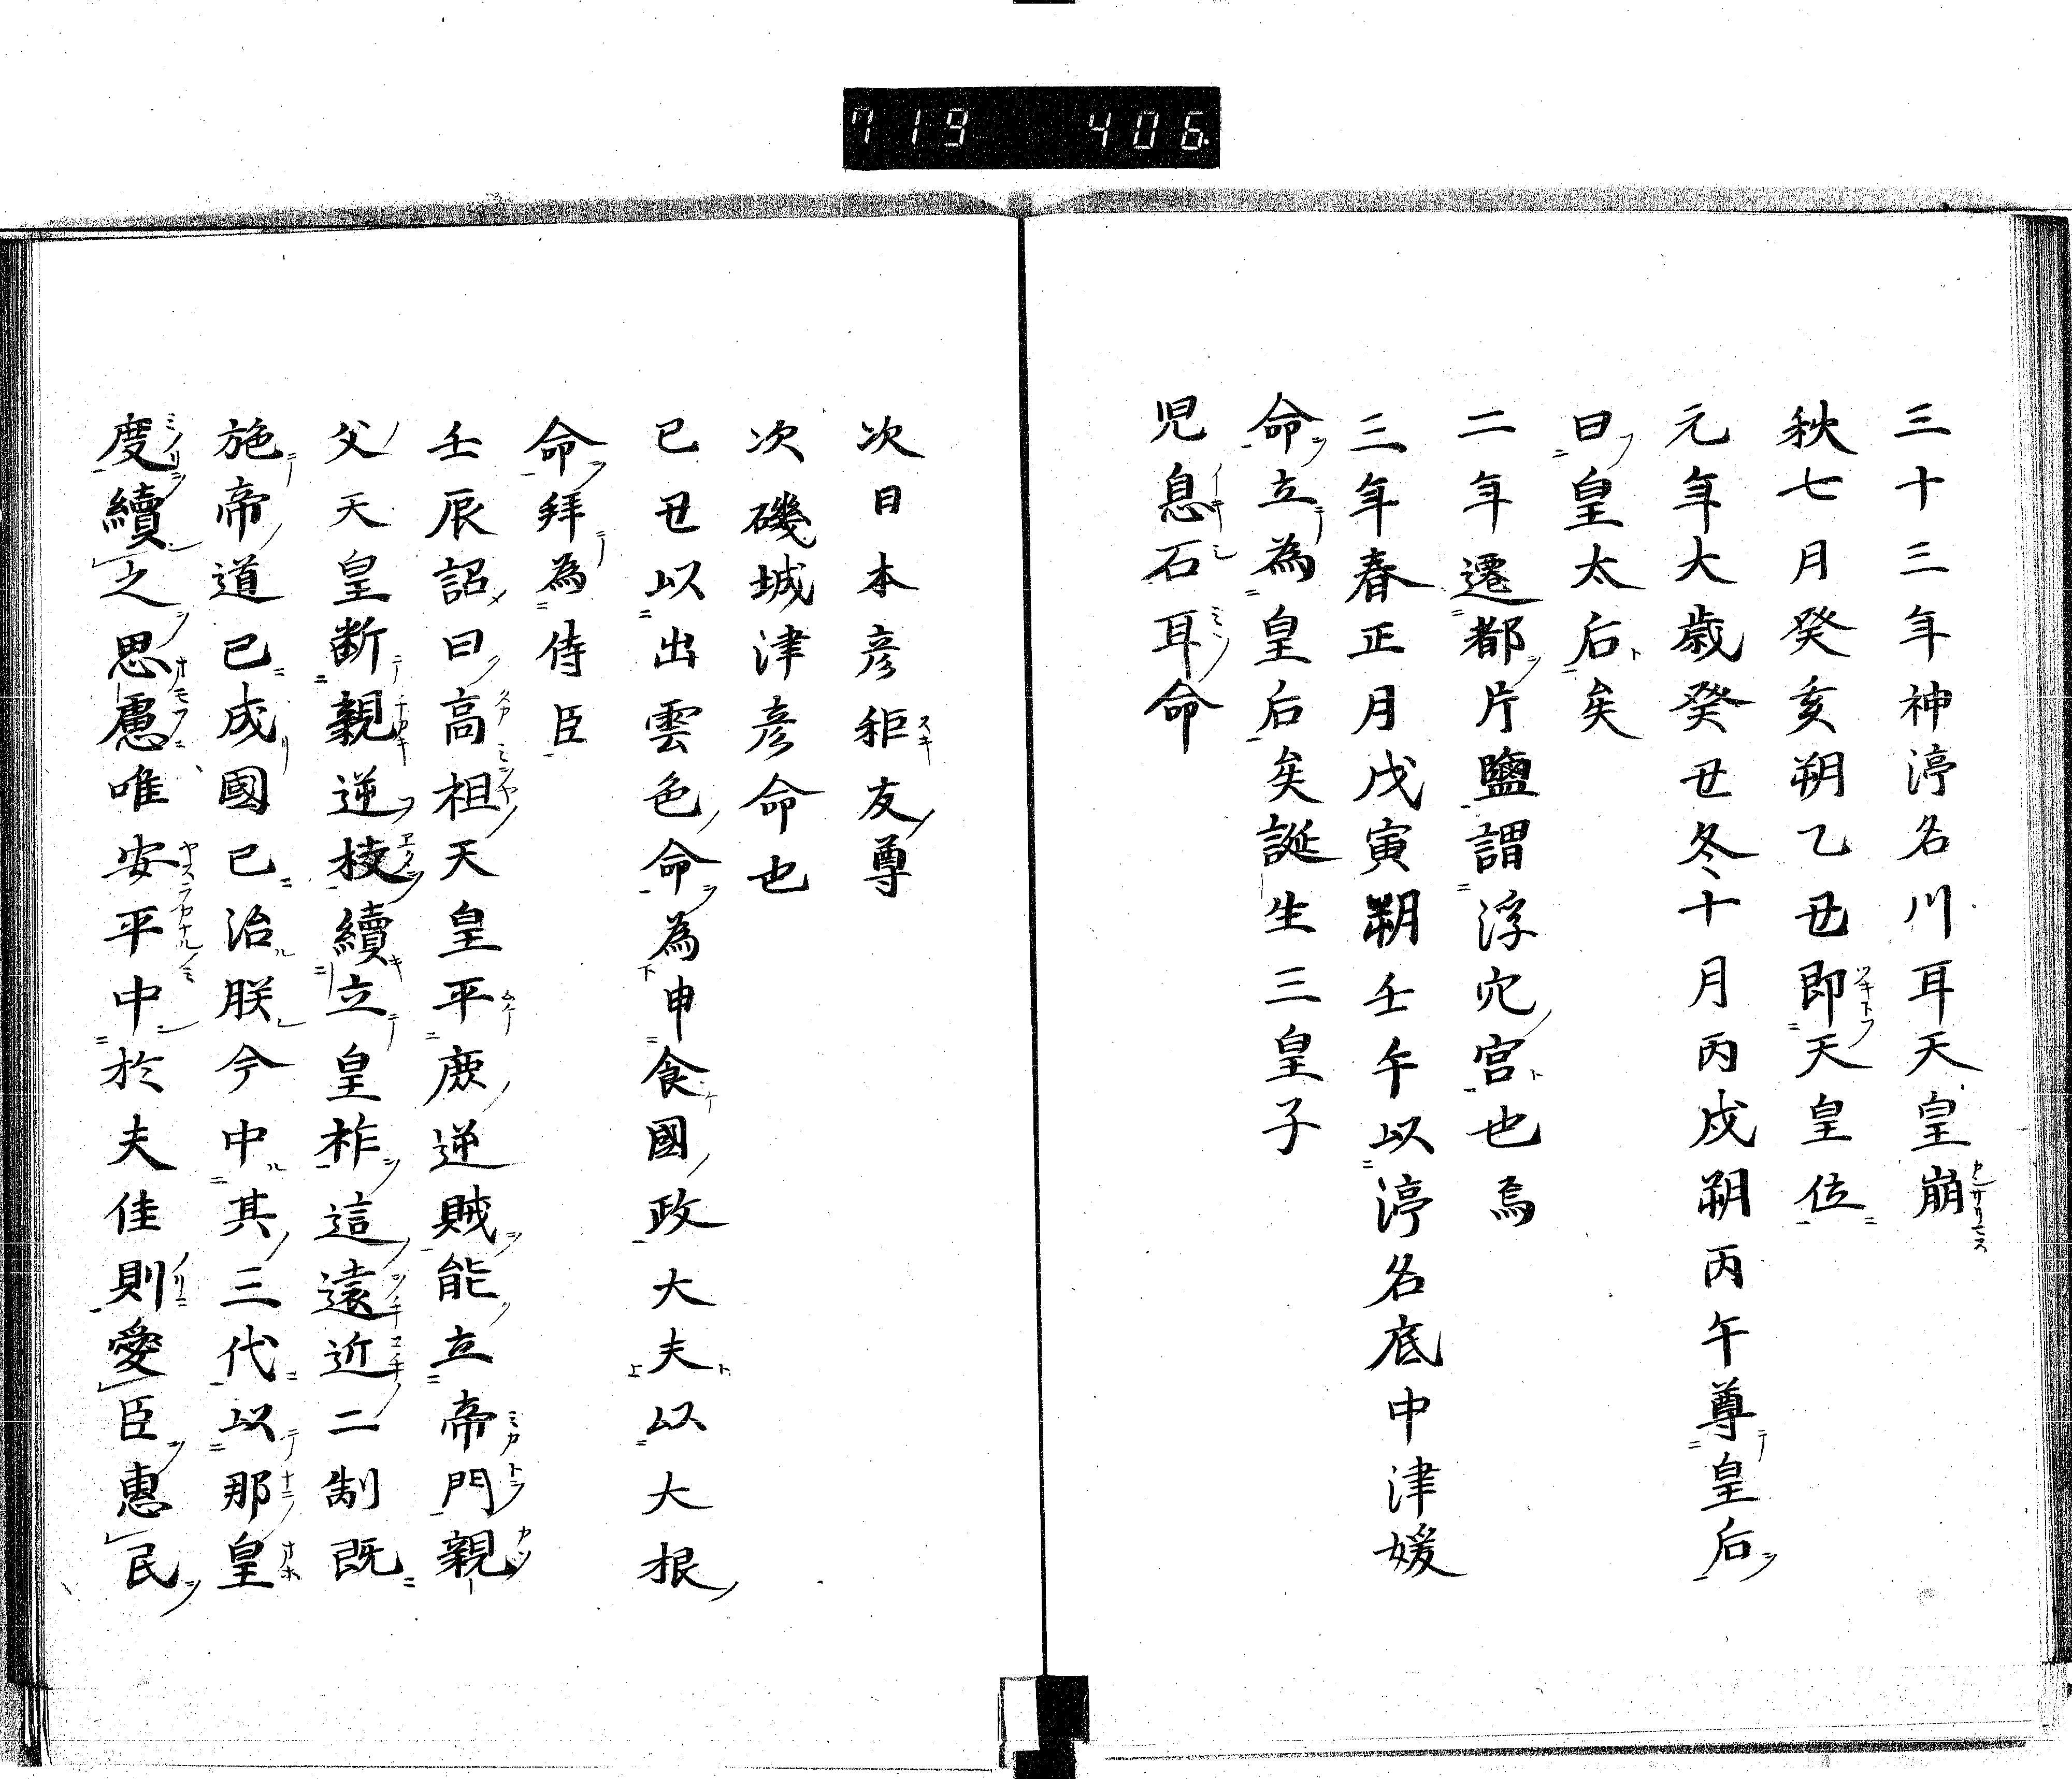 719 406
三十三年神渟名川耳天皇崩
秋七月癸亥朔乙丑即天皇位
元年大歳癸丑冬十月丙戌朔丙午尊皇后
曰皇太后矣
二年遷都片鹽謂浮穴宮也焉
三年春正月戊寅朔壬午以渟名底中津媛
命立為皇后矣誕生三皇子
児息石耳命
次日本彦秬友尊
次磯城津彦命也
已丑以出雲色命為申食國政大夫以大根
命拜為侍臣
壬辰詔曰高祖天皇平厥逆賊能立帝門親
父天皇断親逆枝續立皇祚這遠近二制既
施帝道已成國已治朕今中其三代以那皇
度續之思慮唯安平中於夫佳則愛臣惠民